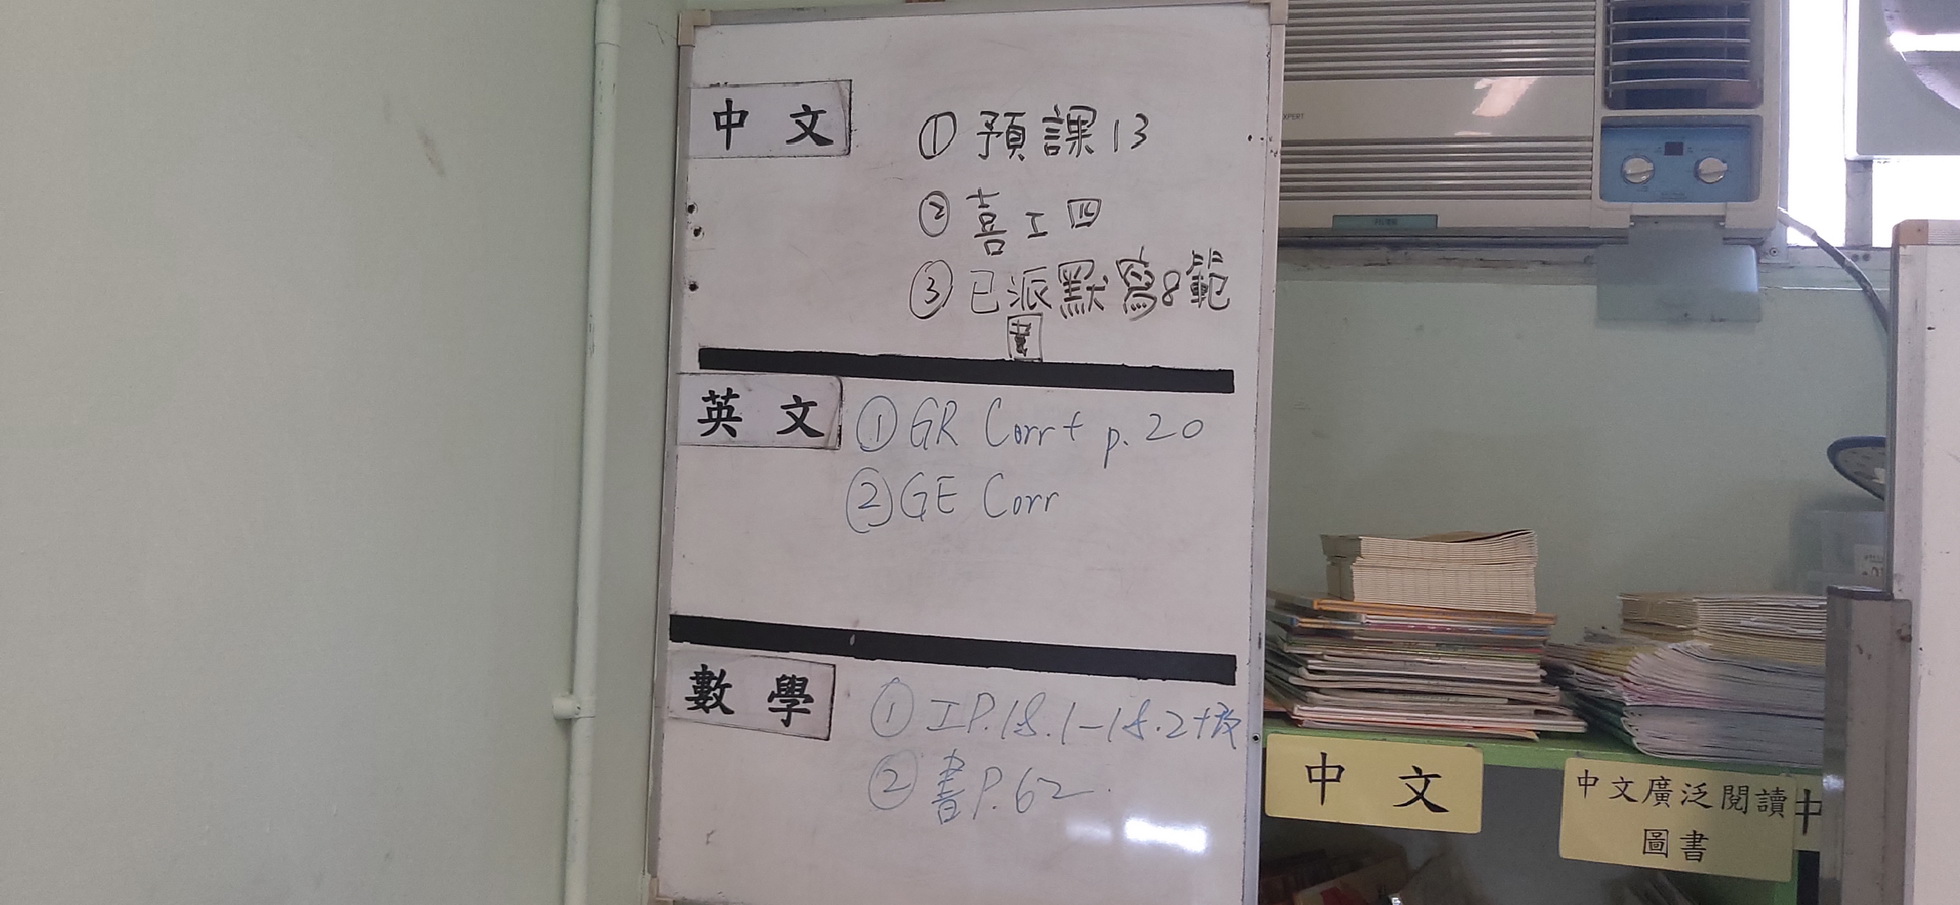 中文
① 預課13
② 喜工四
③ 已派默寫8範
書
英文
① GR Corr + p.20
② GE Corr
數學
① 工P.18.1-18.2+改
② 書P.62
中文
中文廣泛閱讀
圖書
中